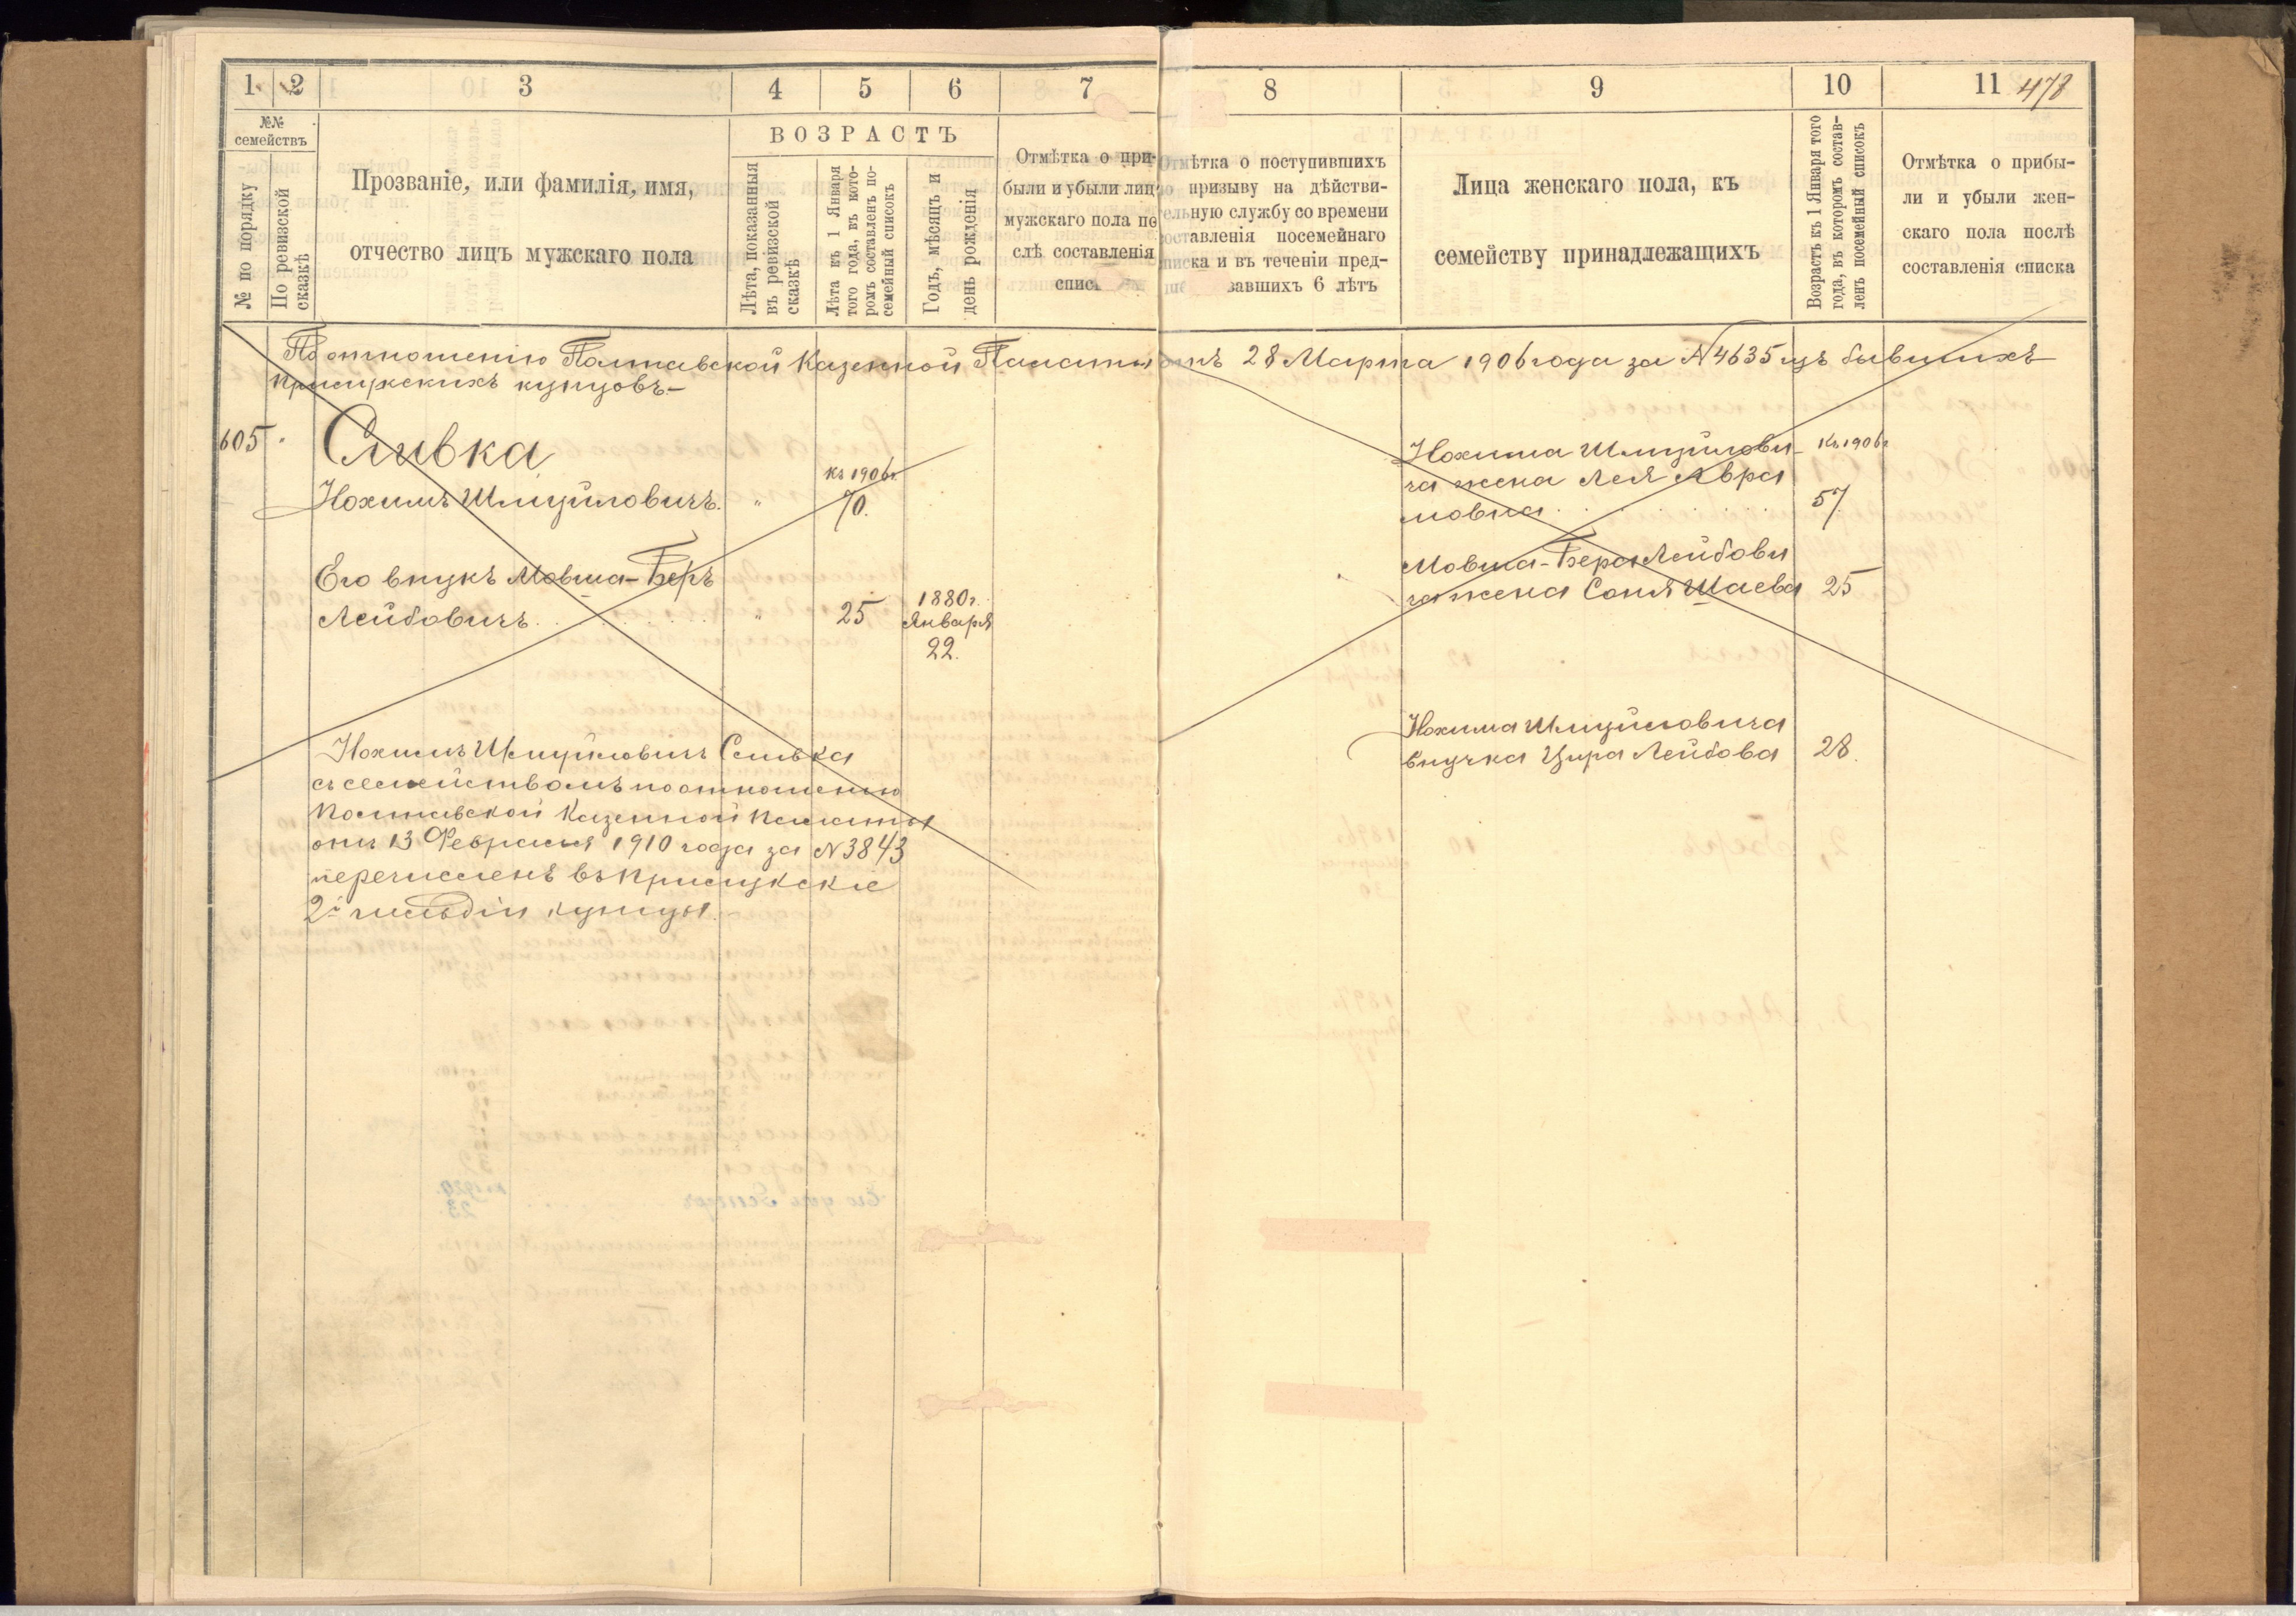 1 2 3 4 5 6 7 8 9 10 11 478
№№ семействъ
№ по порядку
По ревизской сказкѣ
Прозваніе, или фамилія, имя,
отчество лицъ мужскаго пола
ВОЗРАСТЪ
Лѣта, показанныя
въ ревизской
сказкѣ
Лѣта къ 1 Января
того года, въ кото-
ромъ составленъ по-
семейный списокъ
Годъ, мѣсяцъ и
день рожденія
Отмѣтка о при-
были и убыли лицъ
мужскаго пола по
слѣ составленія
спис
Отмѣтка о поступившихъ
по призыву на дѣйстви-
тельную службу со времени
составленія посемейнаго
списка и въ теченіи пред-
завшихъ 6 лѣтъ
Лица женскаго пола, къ
семейству принадлежащихъ
Возрастъ къ 1 Января того
года, въ которомъ состав-
ленъ посемейный списокъ
Отмѣтка о прибы-
ли и убыли жен-
скаго пола послѣ
составленія списка
По отношенію Полтавской Казенной Палаты отъ 28 Марта 1906 года за № 4635 изъ бывшихъ
Прилукскихъ купцовъ-
605
Сливка
Нохимъ Шмуйловичъ. "
къ 1906 г.
70.
Его внукъ Мовша-Беръ
Лейбовичъ. . . . . . . " 25
1880 г.
Января
22.
Нохимъ Шмуйловичъ Сливка
съ семействомъ по отношенію
Полтавской Казенной Палаты
отъ 13 Февраля 1910 года за № 3843
перечисленъ въ Прилукскіе
2й гильдіи купцы.
Нохима Шмуйлови-
ча жена Лея Авра
мовна . . . . . .
Къ 1906 г
57
Мовша-Бера Лейбови
ча жена Соня Шаева 25
Нохима Шмуйловича
внучка Цира Лейбова 28.